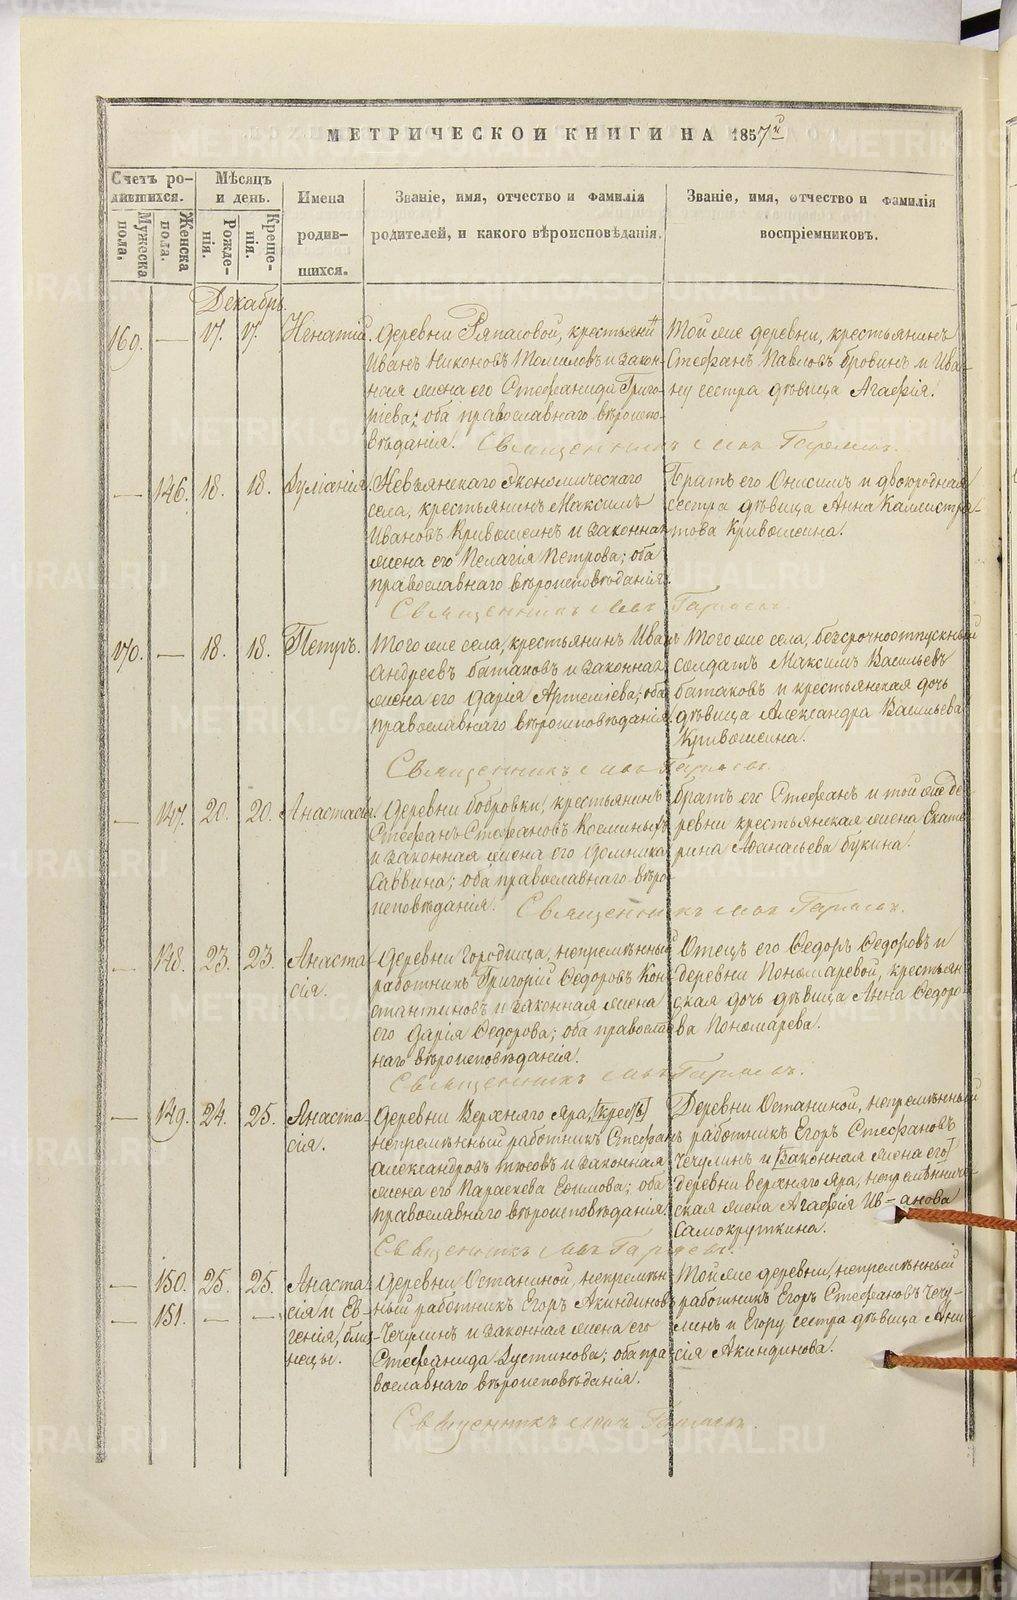 МЕТРИЧЕСКОЙ КНИГИ НА 1857й
Счетъ ро-
дившихся.
Мѣсяцъ
и день.
Имена
родив-
шихся.
Званіе, имя, отчество и фамилія
родителей, и какого вѣроисповѣданія.
Званіе, имя, отчество и фамилія
воспріемниковъ.
Мужеска
пола.
Женска
пола.
Рожде-
нія.
Креще-
нія.
Декабрь
169. — 17. 17. Игнатій.
деревни Ряпасовой, крестьянинъ
Иванъ Никоновъ Томиловъ и закон-
ная жена его Стефанида Григо-
ріева; оба православнаго вѣроиспо-
вѣданія. Священникъ
Той же деревни, крестьянинъ
Стефанъ Павловъ бровинъ и Ива-
ну сестра дѣвица Агафія.
— 146. 18. 18. Іуліанія.
Невьянскаго экономическаго
села, крестьянинъ Максимъ
Ивановъ Кривошеинъ и законная
жена его Пелагія Петрова; оба
православнаго вѣроисповѣданія.
Священникъ
Братъ его Онисимъ и двоюродная
сестра дѣвица Анна Каллистра-
това Кривошеина.
170. — 18. 18. Петръ.
Того же села, крестьянинъ Иванъ
Андреевъ батаковъ и законная
жена его Дарія Артеміева; оба
православнаго вѣроисповѣданія.
Священникъ
Того же села, безсрочноотпускный
солдатъ Максимъ Васильевъ
батаковъ и крестьянская дочь
дѣвица Александра Васильева
Кривошеина.
— 147. 20. 20. Анастасія.
деревни бобровки, крестьянинъ
Стефанъ Стефановъ Косминыхъ
и законная жена его Домника
Саввина; оба православнаго вѣро-
исповѣданія. Священникъ
братъ его Стефанъ и той же де-
ревни крестьянская жена Екате-
рина Аѳанасьева букина.
— 148. 23. 23. Анаста-
сія.
деревни Городища, непремѣнный
работникъ Григорій Ѳедоровъ Кон-
стантиновъ и законная жена
его Дарія Ѳедорова; оба правосла-
внаго вѣроисповѣданія.
Священникъ
Отецъ его Ѳедоръ Ѳедоровъ и
деревни Пономаревой, крестьян-
ская дочь дѣвица Анна Ѳедоро-
ва Пономарева.
— 149. 24. 25. Анаста-
сія.
деревни Верхняго Яра,
непремѣнный работникъ Стефанъ
Александровъ и законная
жена его Параскева Евфимова; оба
православнаго вѣроисповѣданія.
Священникъ
Деревни Останиной, непремѣнный
работникъ Егоръ Стефановъ
Чечулинъ и законная жена его
деревни верхняго яра, непремѣнниче-
ская жена Агафія Ив-анова
Самокруткина.
— 150. 25. 25. Анаста-
— 151. — — сія и Ев-
генія, близ-
нецы.
деревни Останиной, непремѣн-
ный работникъ Егоръ Акиндиновъ
Чечулинъ и законная жена его
Стефанида Іустинова; оба пра-
вославнаго вѣроисповѣданія.
Священникъ
Той же деревни, непремѣнный
работникъ Егоръ Стефановъ Чечу-
линъ и Егору сестра дѣвица Ани-
сія Акиндинова.
METRIKI.GASO-URAL.RU